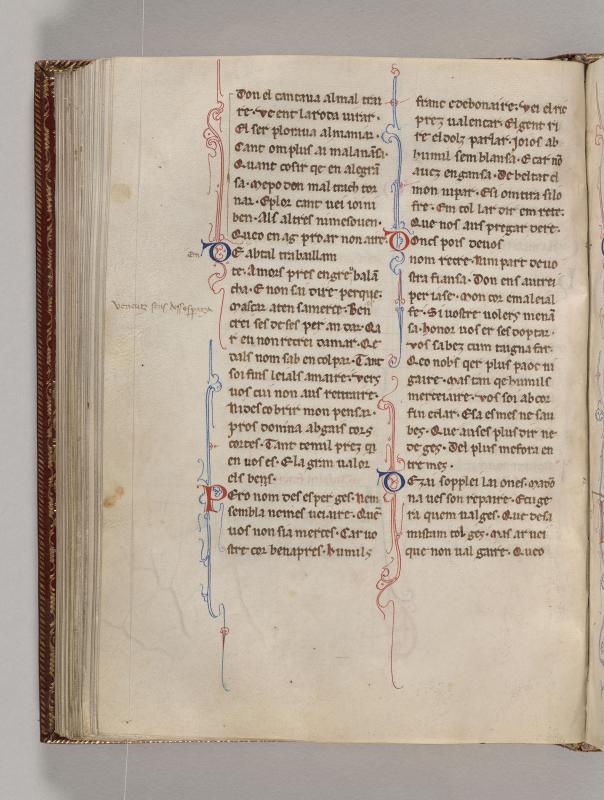 Don el cantaua al mal trai
re. Vezent la rota uirar.
El ser ploraua al mainar.
Cant om plus ai malanansa.
Quant cosir qe en alegran
sa. Mepo don mal traich tor
nar. E plor cant uei ioini
ben. Als altres nim esouen.
Qeu en ag pro ar non aire.
De aital trabaillam
te. Amors pres en gre balan
cha. E non sai dire perque.
Mas car aten sa merce. Ben
crei ses de ses per an dar. Ca
r eu non recrei damar. Qe
dals nom sab encolpar. Tant
soi fins leials amaire. Vers
uos cui non aus retraire.
Ni descobrir mon pensar.
pros domna ab gais cors
cortes. Tant temil prez qi
en uos es. E la gran ualor
els bens.
Pero nom desesper ges. Nem
sembla nemes ueiaire. Que
uos non sia merces. Car uo
stre cor ben apres. humils
franc e debonaire. Vei el ric
prez ualen car. El gent ri
re el dolz parlar. Joios ab
humil semblansa. E car no
auez engansa. De beltat el
mon ni par. Esi om ira si lo
fre. Em col lar dir em rete.
Que nos aus pregar de re.
Doncs pois de uos
nom recre. Nim part de uo
stra fiansa. Don ens autrei
per iase. Mon cor e ma leial
fe. Si uostre volers menan
sa. honor uos er ses doptar.
vos sabez cum taigna far.
Qeo nobs qer plus paoc ni
gaire. Mas tan qe humils
merceiaire. Vos soi ab cor
fin e clar. E sa es mes ne sau
bes. Que auses plus dir ne
de ges. Del plus me fora en
tremes.
Dezai sopplei lai on es. Mado
na ues son repaire. E cuge
ra quem ualges. Que desa
mistam tolges. Mas ar uei
que non ual gaire. Queo
venauz sens desespaza